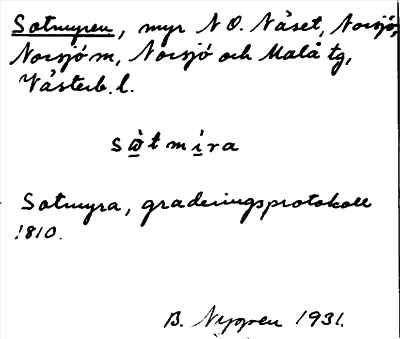 Sotmyren, myr N O. Näset, Norsjö,
Norsjö m, Norsjö och Malå tg,
Västerb. l.
sὼtmira
Sotmyra, graderingsprotokoll
1810.
B. Nygren 1931.